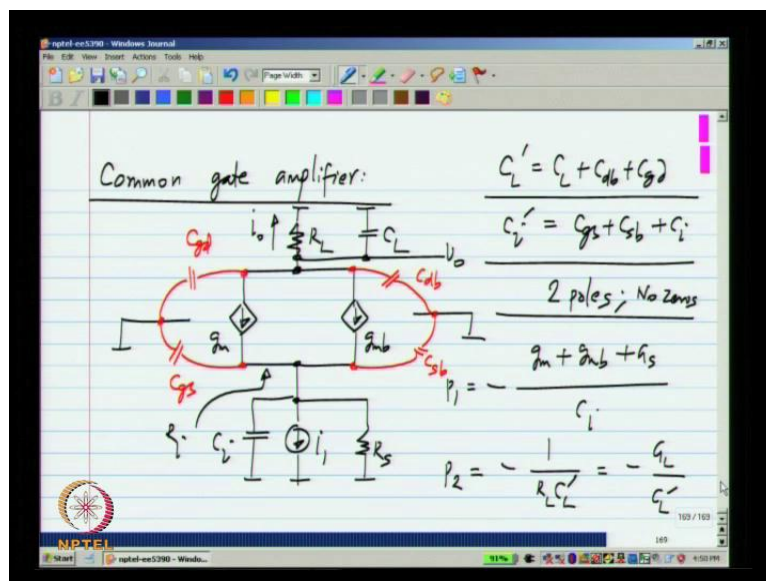 nptel-ee5390 - Windows Journal
File Edit View Insert Actions Tools Help
Page Width
B I
Common gate amplifier:
C_L' = C_L + C_db + C_gd
C_i' = C_gs + C_sb + C_i
2 poles; No zeros
p_1 = - (g_m + g_mb + G_s) / C_i
p_2 = - 1 / (R_L C_L') = - G_L / C_L'
i_o R_L C_L
v_o
C_gd C_db
g_m g_mb
C_gs C_sb
R_i C_i i_1 R_s
163 / 163
169
NPTEL
Start nptel-ee5390 - Windo... 91% 4:50 PM